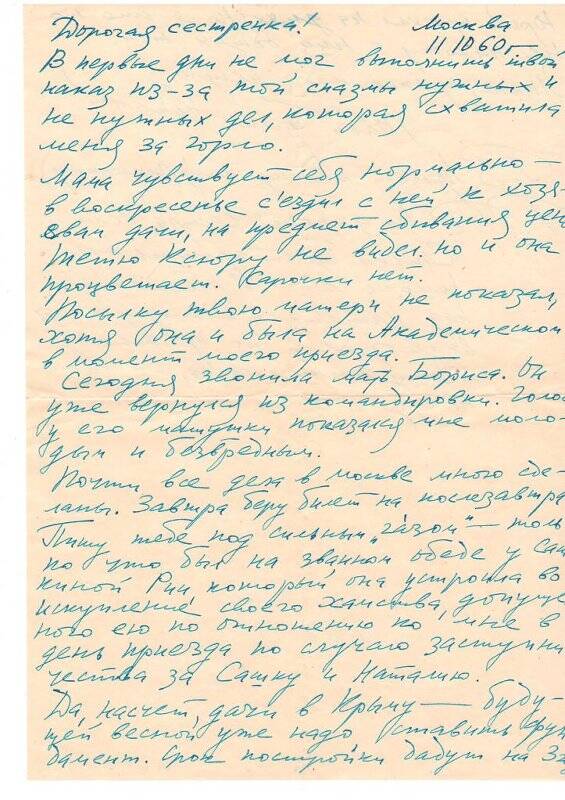 Дорогая сестренка! Москва
11 10 60 г
В первые дни не мог выполнить твой
наказ из-за той спазмы нужных и
не нужных дел, которая схватила
меня за горло.
Мама чувствует себя нормально —
в воскресенье с'ездил с ней к хозя-
евам дачи, на предмет сбивания цен
Тетю Ксюру не видел. но и она
процветает. Карочки нет.
Посылку твою матери не показал,
хотя она и была на Академической
в момент моего приезда.
Сегодня звонила мать Бориса. Он
уже вернулся из командировки. Голос
у его мамушки показался мне моло-
дым и безвредным.
Почти все дела в москве мною сде-
ланы. Завтра беру билет на послезавтра
Пишу тебе под сильным „газом" — толь
ко что был на званном обеде у Саш
киной Рии, который она устроила во
искупление своего хамства, допуще
ного ею по отношению ко мне в
день приезда по случаю заступни
чества за Сашку и Наталию.
Да, насчет дачи в Крыму — буду-
щей весной уже надо ставить фун
дамент. Срок постройки дадут на 3